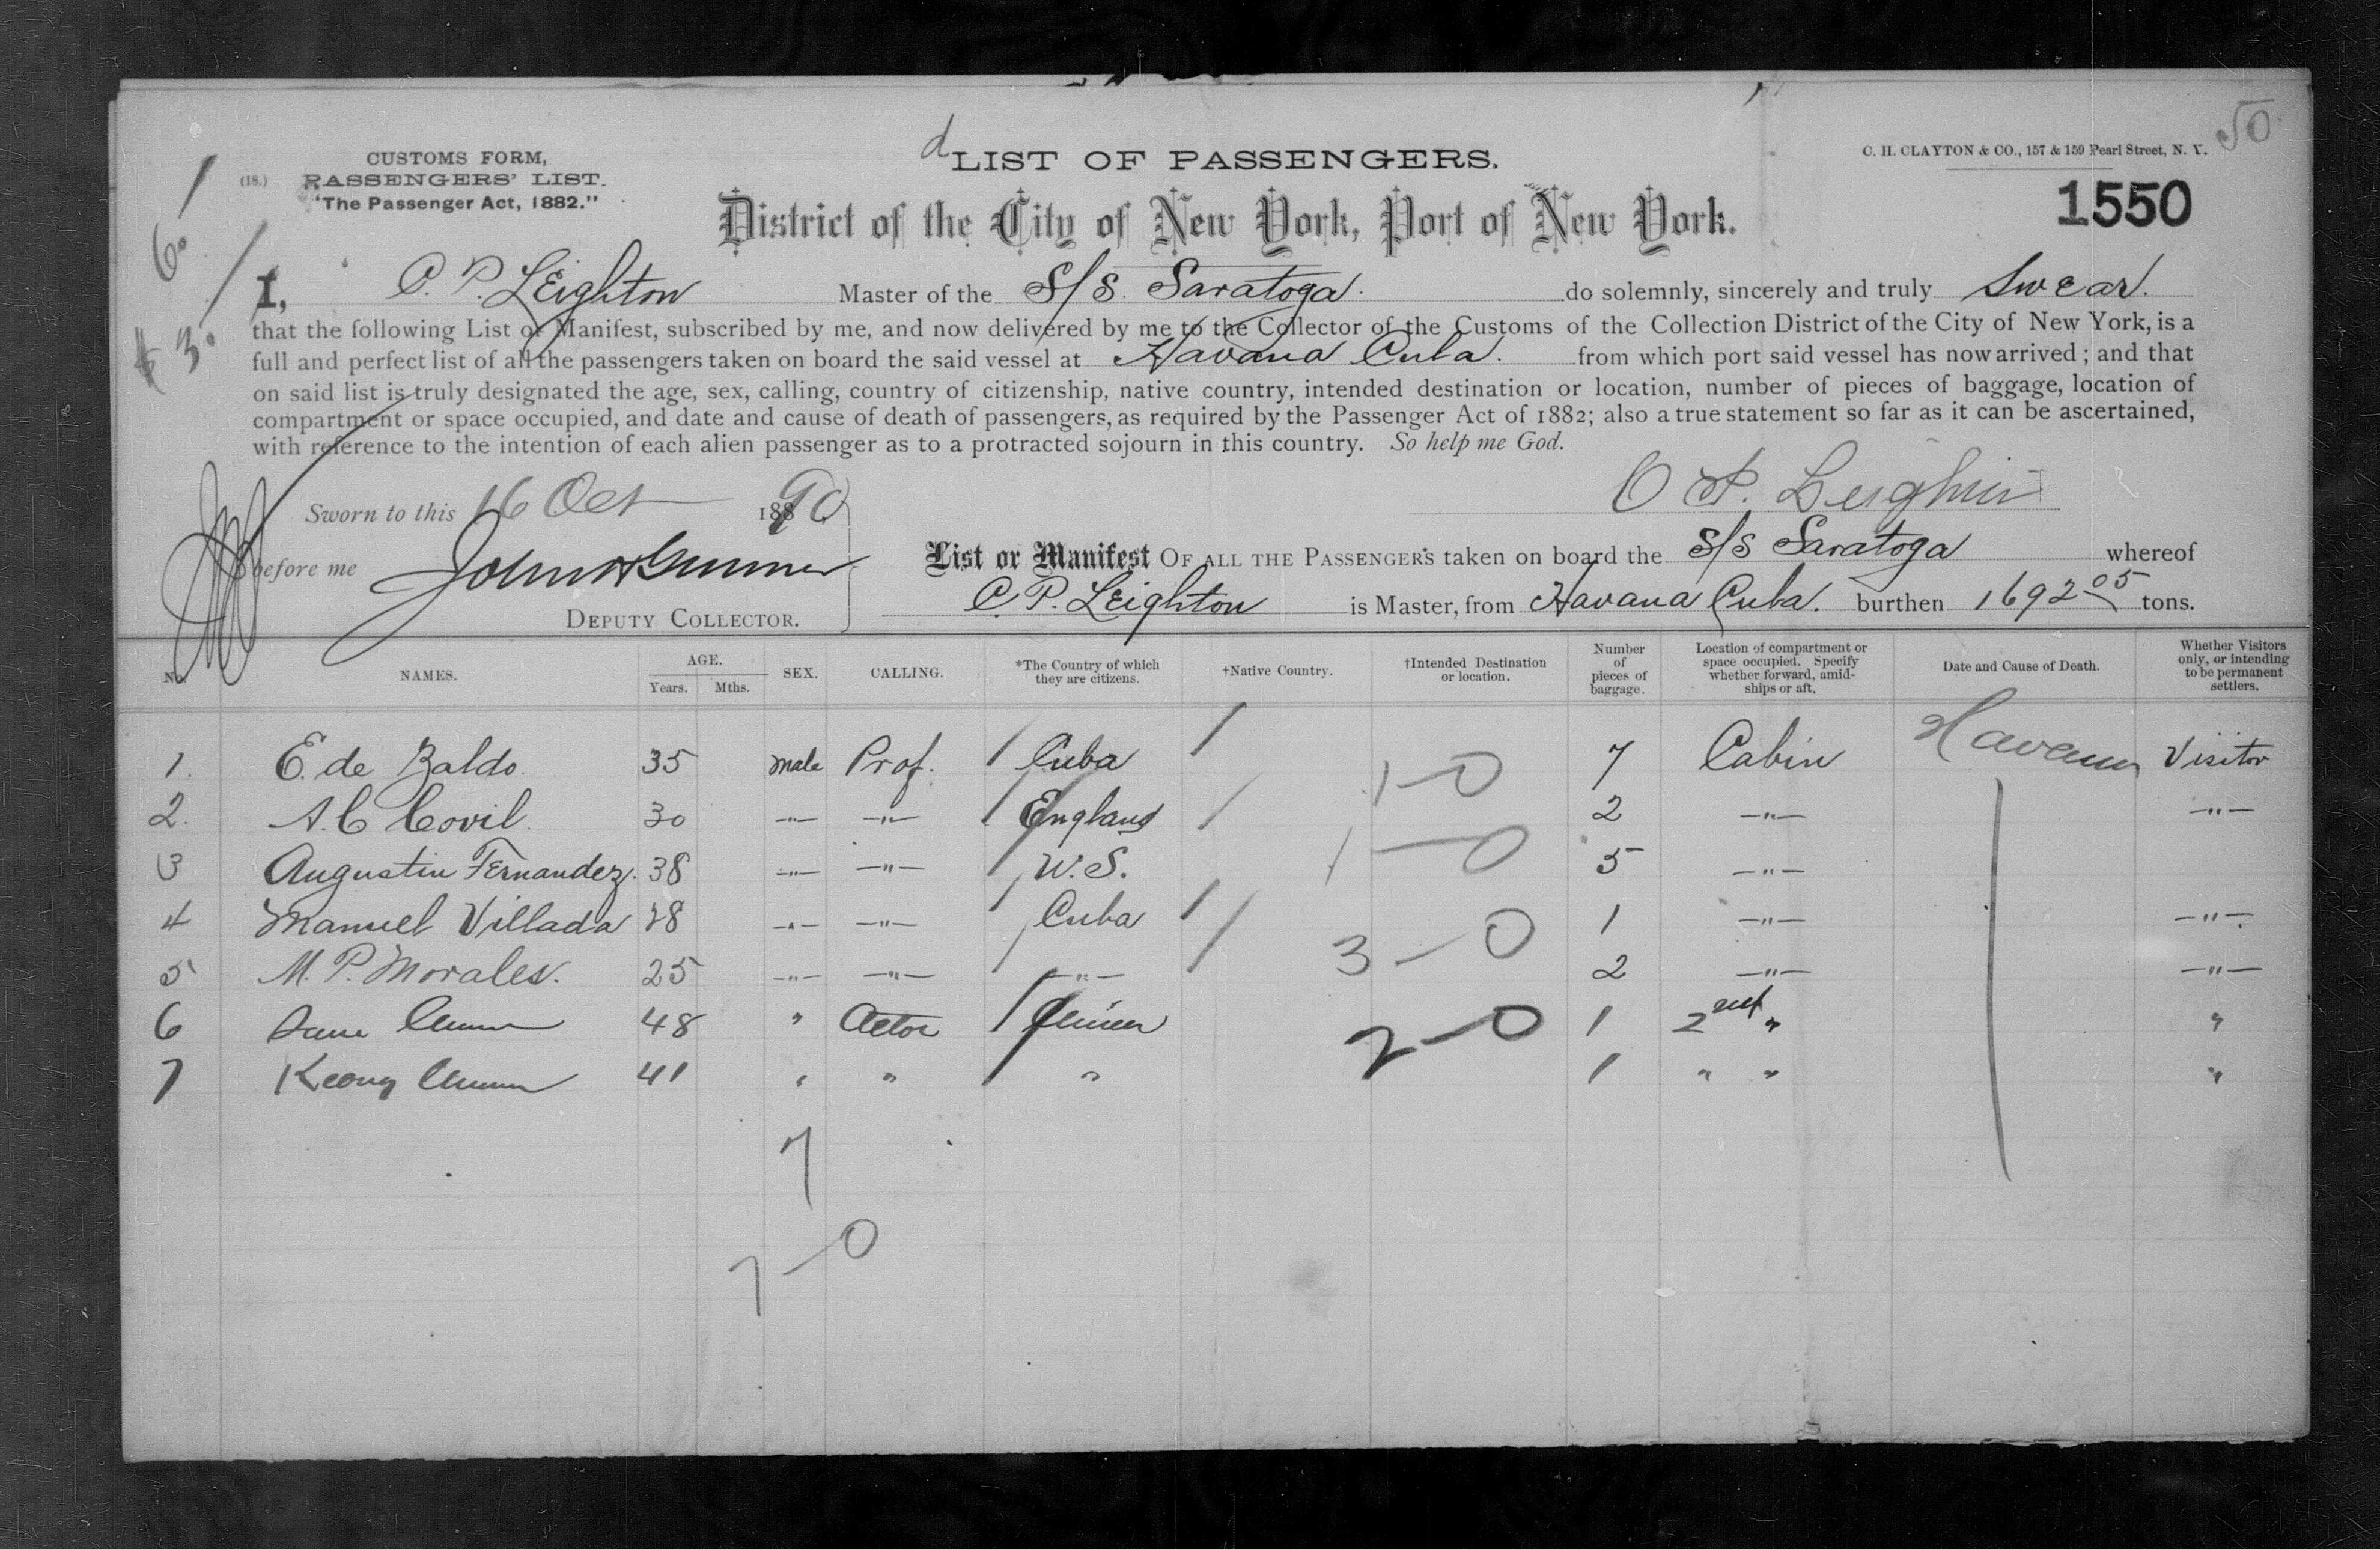 d LIST OF PASSENGERS.
50
CUSTOMS FORM,
(18.) PASSENGERS' LIST.
"The Passenger Act, 1882."
C. H. CLAYTON & CO., 157 & 159 Pearl Street, N. Y.
1550
District of the City of New York, Port of New York.
6.
$ 3.
I, C. P. Leighton Master of the S/S. Saratoga. do solemnly, sincerely and truly Swear.
that the following List or Manifest, subscribed by me, and now delivered by me to the Collector of the Customs of the Collection District of the City of New York, is a
full and perfect list of all the passengers taken on board the said vessel at Havana Cuba. from which port said vessel has now arrived; and that
on said list is truly designated the age, sex, calling, country of citizenship, native country, intended destination or location, number of pieces of baggage, location of
compartment or space occupied, and date and cause of death of passengers, as required by the Passenger Act of 1882; also a true statement so far as it can be ascertained,
with reference to the intention of each alien passenger as to a protracted sojourn in this country. So help me God.
Sworn to this 16 Oct 188 90
before me John
DEPUTY COLLECTOR.
List or Manifest OF ALL THE PASSENGERS taken on board the S/S Saratoga whereof
C. P. Leighton is Master, from Havana Cuba. burthen 1692 05 tons.
No. NAMES. AGE. Years. Mths. SEX. CALLING. *The Country of which they are citizens. †Native Country. †Intended Destination or location. Number of pieces of baggage. Location of compartment or space occupied. Specify whether forward, amidships or aft. Date and Cause of Death. Whether Visitors only, or intending to be permanent settlers.
1. E. de Zaldo. 35 male Prof. Cuba 1-0 7 Cabin Havana Visitor
2. A. C Covil. 30 —"— —"— England 2 —"— —"—
3 Augustin Fernandez. 38 —"— —"— U.S. 1-0 5 —"—
4 Manuel Villada 28 —"— —"— Cuba 1 —"— —"—
5 M. P. Morales. 25 —"— —"— —"— 3-0 2 —"— —"—
6 48 " Actor 2-0 1 2nd " "
7 Keong 41 " " " 1 " " "
7
7-0